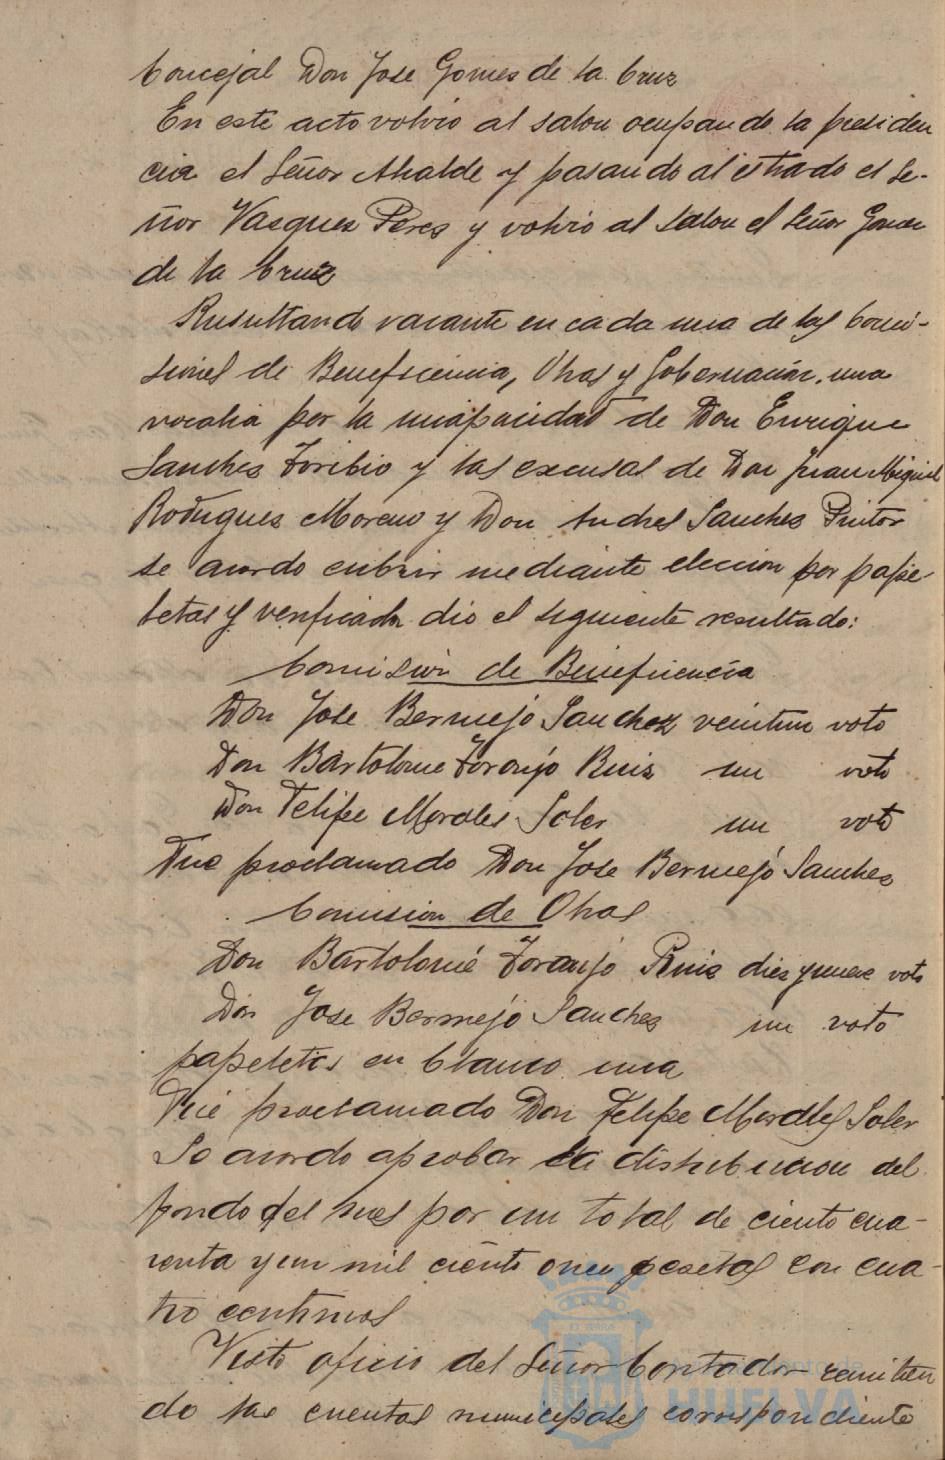 Concejal Don Jose Gomes de la Cruz
En este acto volvio al salon ocupando la presiden
cia el Señor Alcalde y pasando al estrado el Se-
ñor Vasques Peres y volvio al salon el Señor Gomes
de la Cruz
Resultando vacante en cada una de las Comi-
siones de Beneficencia, Obras y Gobernación, una
vocalia por la incapacidad de Don Enrique
Sanches Toribio y las excusas de Don Juan Miguel
Rodrigues Moreno y Don Andres Sanches Pintor
se acordo cubrir mediante eleccion por pape-
letas y verificada dio el siguiente resultado:
Comision de Beneficencia
Don Jose Bermejo Sanchez veintiun voto
Don Bartolome Toronjo Ruis un voto
Don Felipe Morales Soler un voto
Fue proclamado Don Jose Bermejo Sanches
Comision de Obras
Don Bartolomé Toronjo Ruis dies y nueve voto
Don Jose Bermejo Sanches un voto
papeletas en blanco una
Fue proclamado Don Felipe Morales Soler
Se acordo aprobar la distribucion del
fondo del mes por un total de ciento cua-
renta y un mil ciento once pesetas con cua-
tro centimos
Visto oficio del Señor Contador remitien
do las cuentas municipales correspondiente
Ayuntamiento de
HUELVA